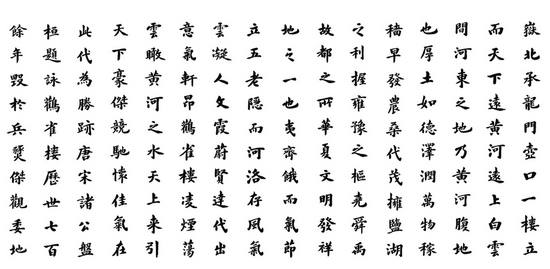 嶽北承龍門壺口一樓立
而天下遠黃河遠上白雲
間河東之地乃黃河腹地
也厚土如德澤潤萬物稼
穡早發農桑代茂擅鹽湖
之利握雍豫之樞堯舜禹
故都之所華夏文明發祥
地之一也夷齊餓而氣節
立五老隱而河洛存風氣
雲凝人文霞蔚賢達代出
意氣軒昂鸛雀樓凌煙蕩
雲瞰黃河之水天上來引
天下豪傑競馳懷佳氣在
此代為勝跡唐宋諸公盤
桓題詠鸛雀樓歷世七百
餘年毀於兵燹傑觀委地